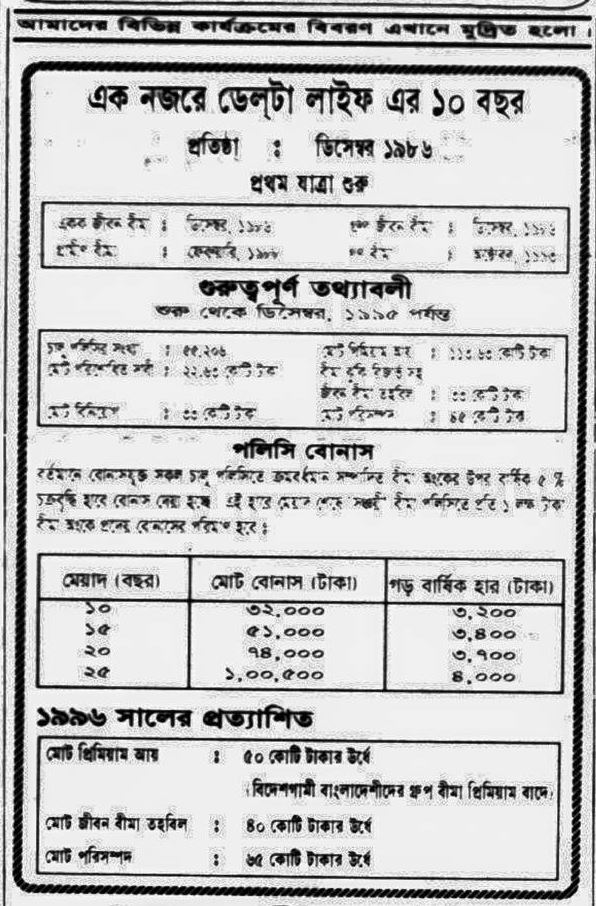 আমাদের বিভিন্ন কার্যক্রমের বিবরণ এখানে মুদ্রিত হলো।
এক নজরে ডেল্টা লাইফ এর ১০ বছর
প্রতিষ্ঠা : ডিসেম্বর ১৯৮৬
প্রথম যাত্রা শুরু
একক জীবন বীমা : ডিসেম্বর, ১৯৮৬ জীবন বীমা : ডিসেম্বর,
বীমা : ফেব্রুয়ারি, ১৯৮৮ বীমা : অক্টোবর,
গুরুত্বপূর্ণ তথ্যাবলী
শুরু থেকে ডিসেম্বর, ১৯৯৫ পর্যন্ত
চালু পলিসির সংখ্যা : ৫৫,২০৬ মোট প্রিমিয়াম আয় : কোটি টাকা
মোট পরিশোধিত দাবী : ২২.৬০ কোটি টাকা
জীবন বীমা তহবিল : ৩০ কোটি টাকা
মোট বিনিয়োগ : ৩০ কোটি টাকা মোট পরিসম্পদ : ৪৫ কোটি টাকা
পলিসি বোনাস
বর্তমানে বোনাসযুক্ত সকল চালু পলিসিতে ক্রমবর্ধমান সম্পাদিত বীমা অংকের উপর বার্ষিক ৫ %
চক্রবৃদ্ধি হারে বোনাস দেয়া হচ্ছে এই হারে মেয়াদ শেষে বীমা পলিসিতে প্রতি ১ লক্ষ টাকা
বীমা অংকে প্রদেয় বোনাসের পরিমাণ হবে :
মেয়াদ (বছর) মোট বোনাস (টাকা) গড় বার্ষিক হার (টাকা)
১০ ৩২,০০০ ৩,২০০
১৫ ৫১,০০০ ৩,৪০০
২০ ৭৪,০০০ ৩,৭০০
২৫ ১,০০,৫০০ ৪,০০০
১৯৯৬ সালের প্রত্যাশিত
মোট প্রিমিয়াম আয় : ৫০ কোটি টাকার উর্ধে
(বিদেশগামী বাংলাদেশীদের গ্রুপ বীমা প্রিমিয়াম বাদে)
মোট জীবন বীমা তহবিল : ৪০ কোটি টাকার উর্ধে
মোট পরিসম্পদ : ৬৫ কোটি টাকার উর্ধে